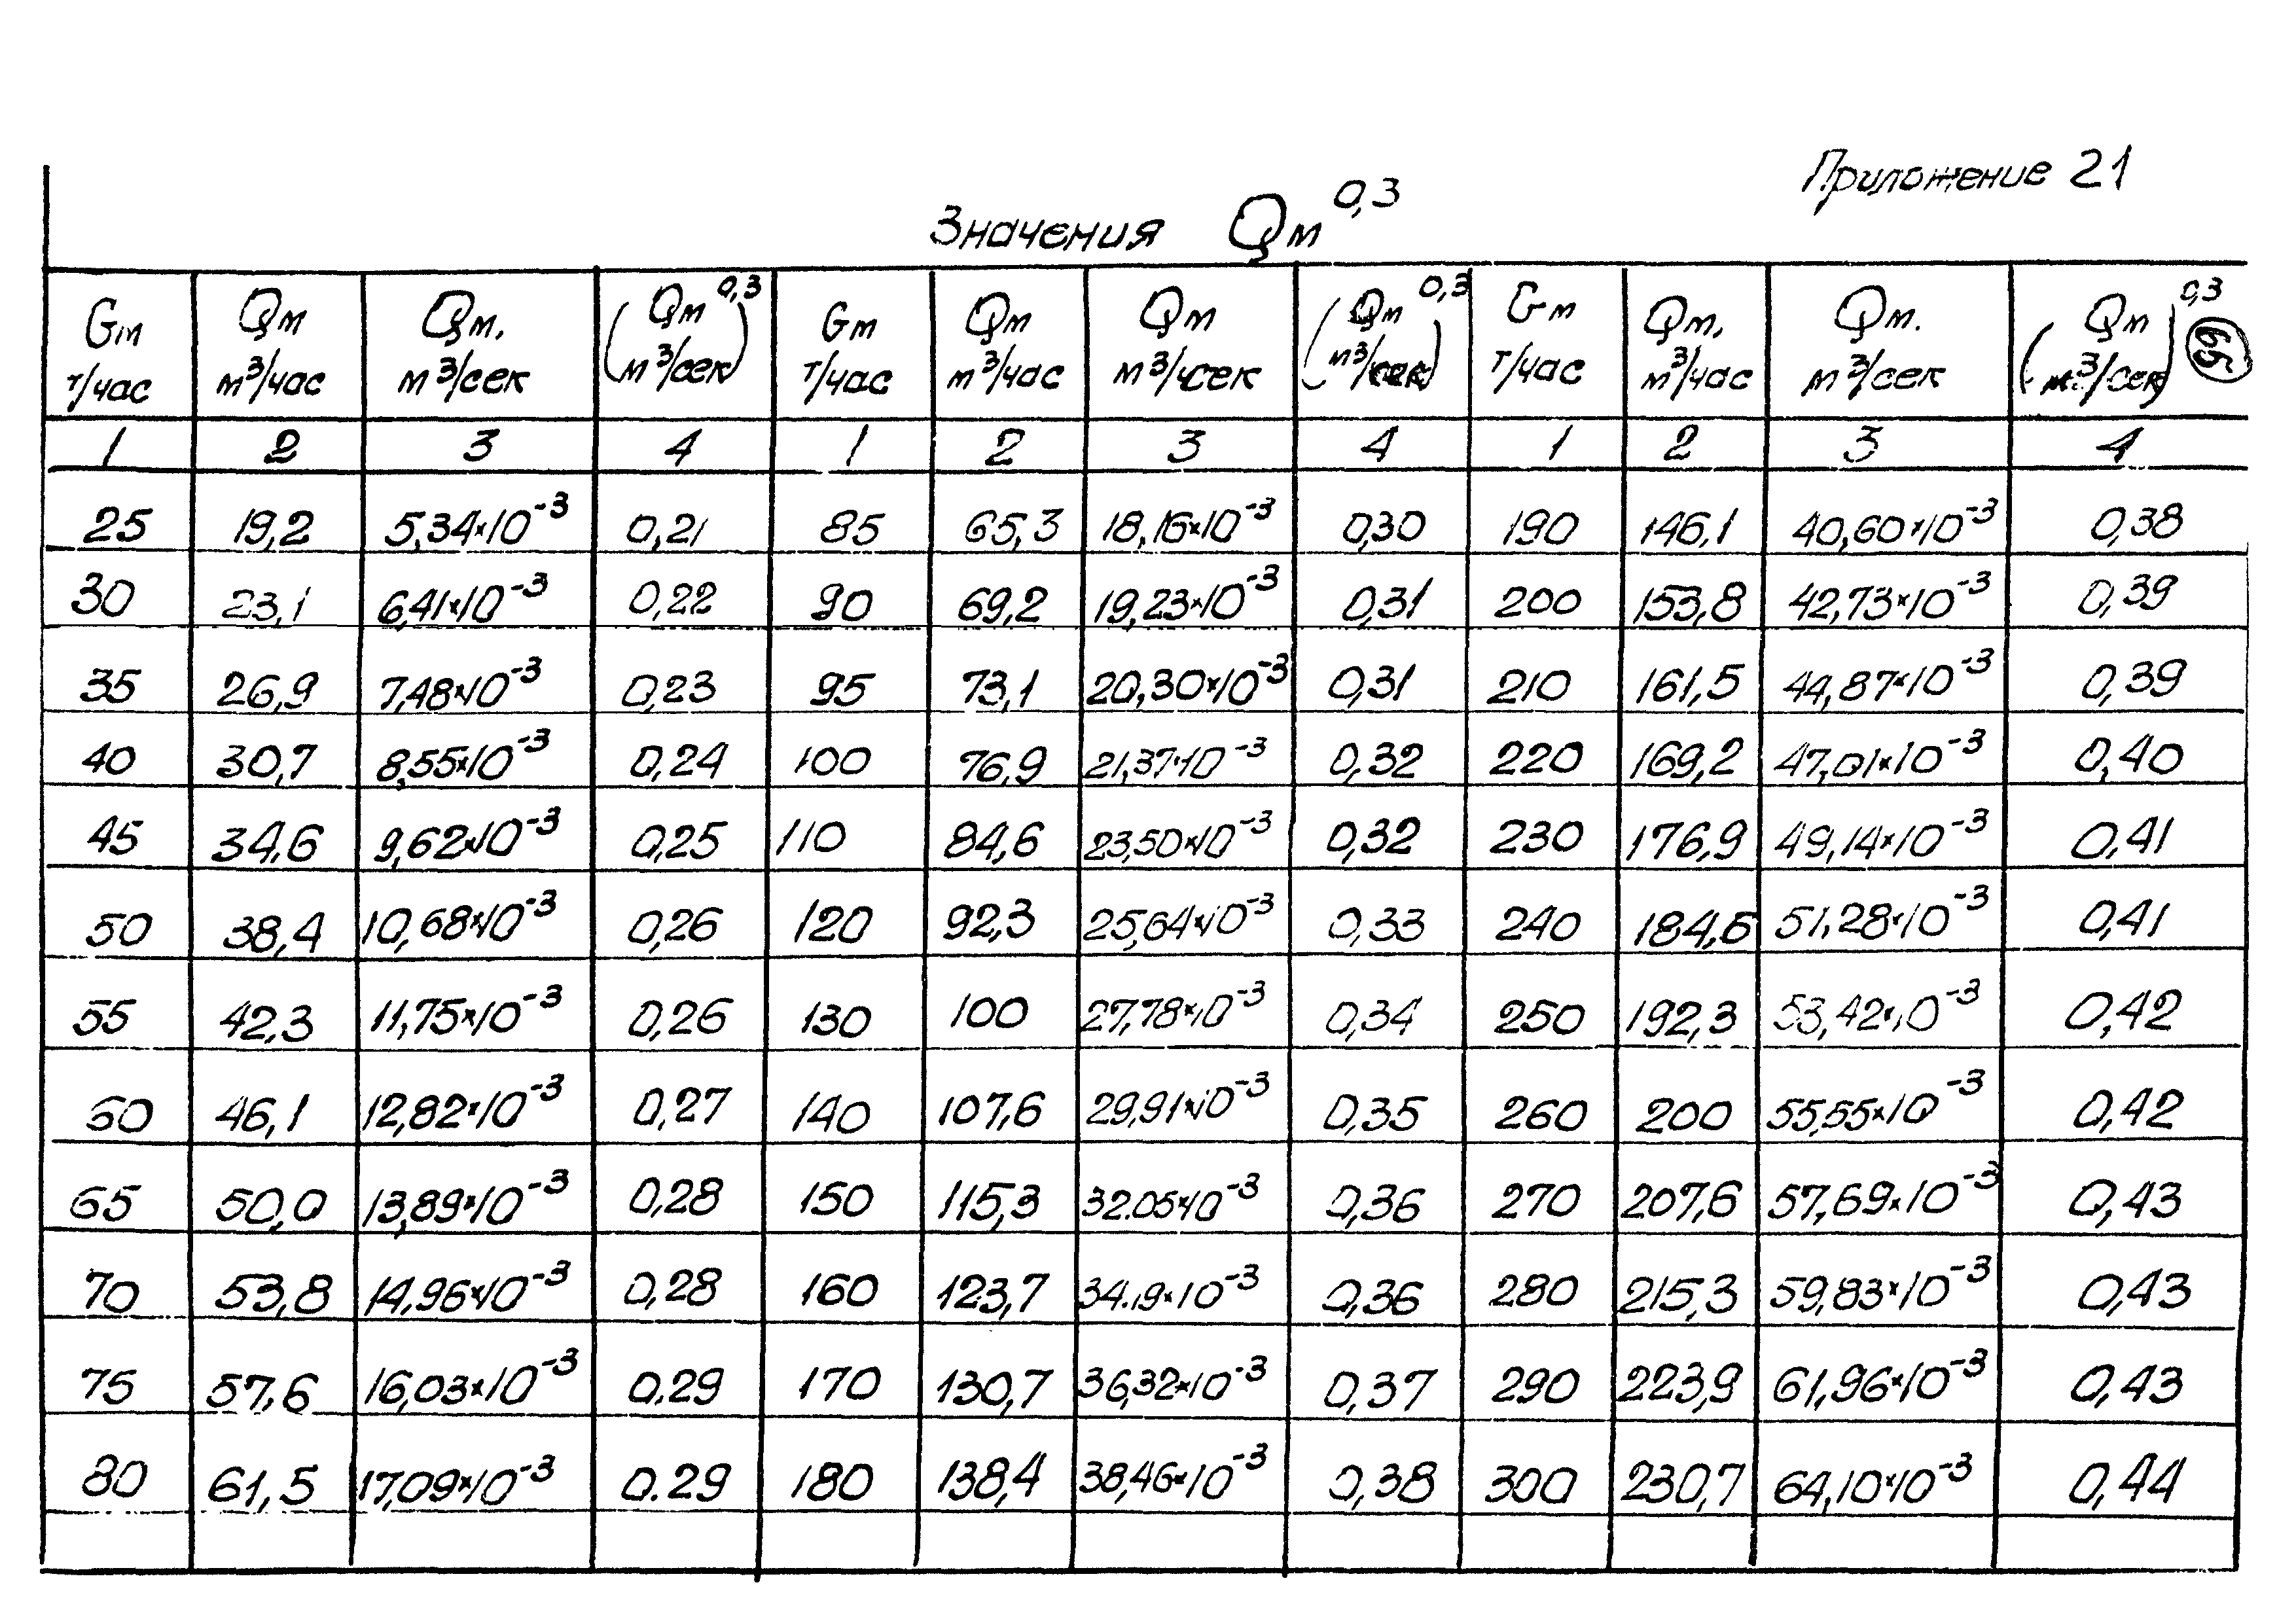 Приложение 21
Значения Qм^0,3
Gm т/час | Qм м³/час | Qм, м³/сек | (Qм м³/сек)^0,3 | Gm т/час | Qм м³/час | Qм м³/сек | (Qм м³/сек)^0,3 | Gм т/час | Qм, м³/час | Qм. м³/сек | (Qм м³/сек)^0,3
65
1 | 2 | 3 | 4 | 1 | 2 | 3 | 4 | 1 | 2 | 3 | 4
25 | 19,2 | 5,34×10⁻³ | 0,21 | 85 | 65,3 | 18,16×10⁻³ | 0,30 | 190 | 146,1 | 40,60×10⁻³ | 0,38
30 | 23,1 | 6,41×10⁻³ | 0,22 | 90 | 69,2 | 19,23×10⁻³ | 0,31 | 200 | 153,8 | 42,73×10⁻³ | 0,39
35 | 26,9 | 7,48×10⁻³ | 0,23 | 95 | 73,1 | 20,30×10⁻³ | 0,31 | 210 | 161,5 | 44,87×10⁻³ | 0,39
40 | 30,7 | 8,55×10⁻³ | 0,24 | 100 | 76,9 | 21,37·10⁻³ | 0,32 | 220 | 169,2 | 47,01×10⁻³ | 0,40
45 | 34,6 | 9,62×10⁻³ | 0,25 | 110 | 84,6 | 23,50×10⁻³ | 0,32 | 230 | 176,9 | 49,14×10⁻³ | 0,41
50 | 38,4 | 10,68×10⁻³ | 0,26 | 120 | 92,3 | 25,64×10⁻³ | 0,33 | 240 | 184,6 | 51,28×10⁻³ | 0,41
55 | 42,3 | 11,75×10⁻³ | 0,26 | 130 | 100 | 27,78×10⁻³ | 0,34 | 250 | 192,3 | 53,42×10⁻³ | 0,42
60 | 46,1 | 12,82×10⁻³ | 0,27 | 140 | 107,6 | 29,91×10⁻³ | 0,35 | 260 | 200 | 55,55×10⁻³ | 0,42
65 | 50,0 | 13,89×10⁻³ | 0,28 | 150 | 115,3 | 32.05×10⁻³ | 0,36 | 270 | 207,6 | 57,69×10⁻³ | 0,43
70 | 53,8 | 14,96×10⁻³ | 0,28 | 160 | 123,7 | 34.19×10⁻³ | 0,36 | 280 | 215,3 | 59,83×10⁻³ | 0,43
75 | 57,6 | 16,03×10⁻³ | 0,29 | 170 | 130,7 | 36,32×10⁻³ | 0,37 | 290 | 223,9 | 61,96×10⁻³ | 0,43
80 | 61,5 | 17,09×10⁻³ | 0.29 | 180 | 138,4 | 38,46×10⁻³ | 0,38 | 300 | 230,7 | 64,10×10⁻³ | 0,44